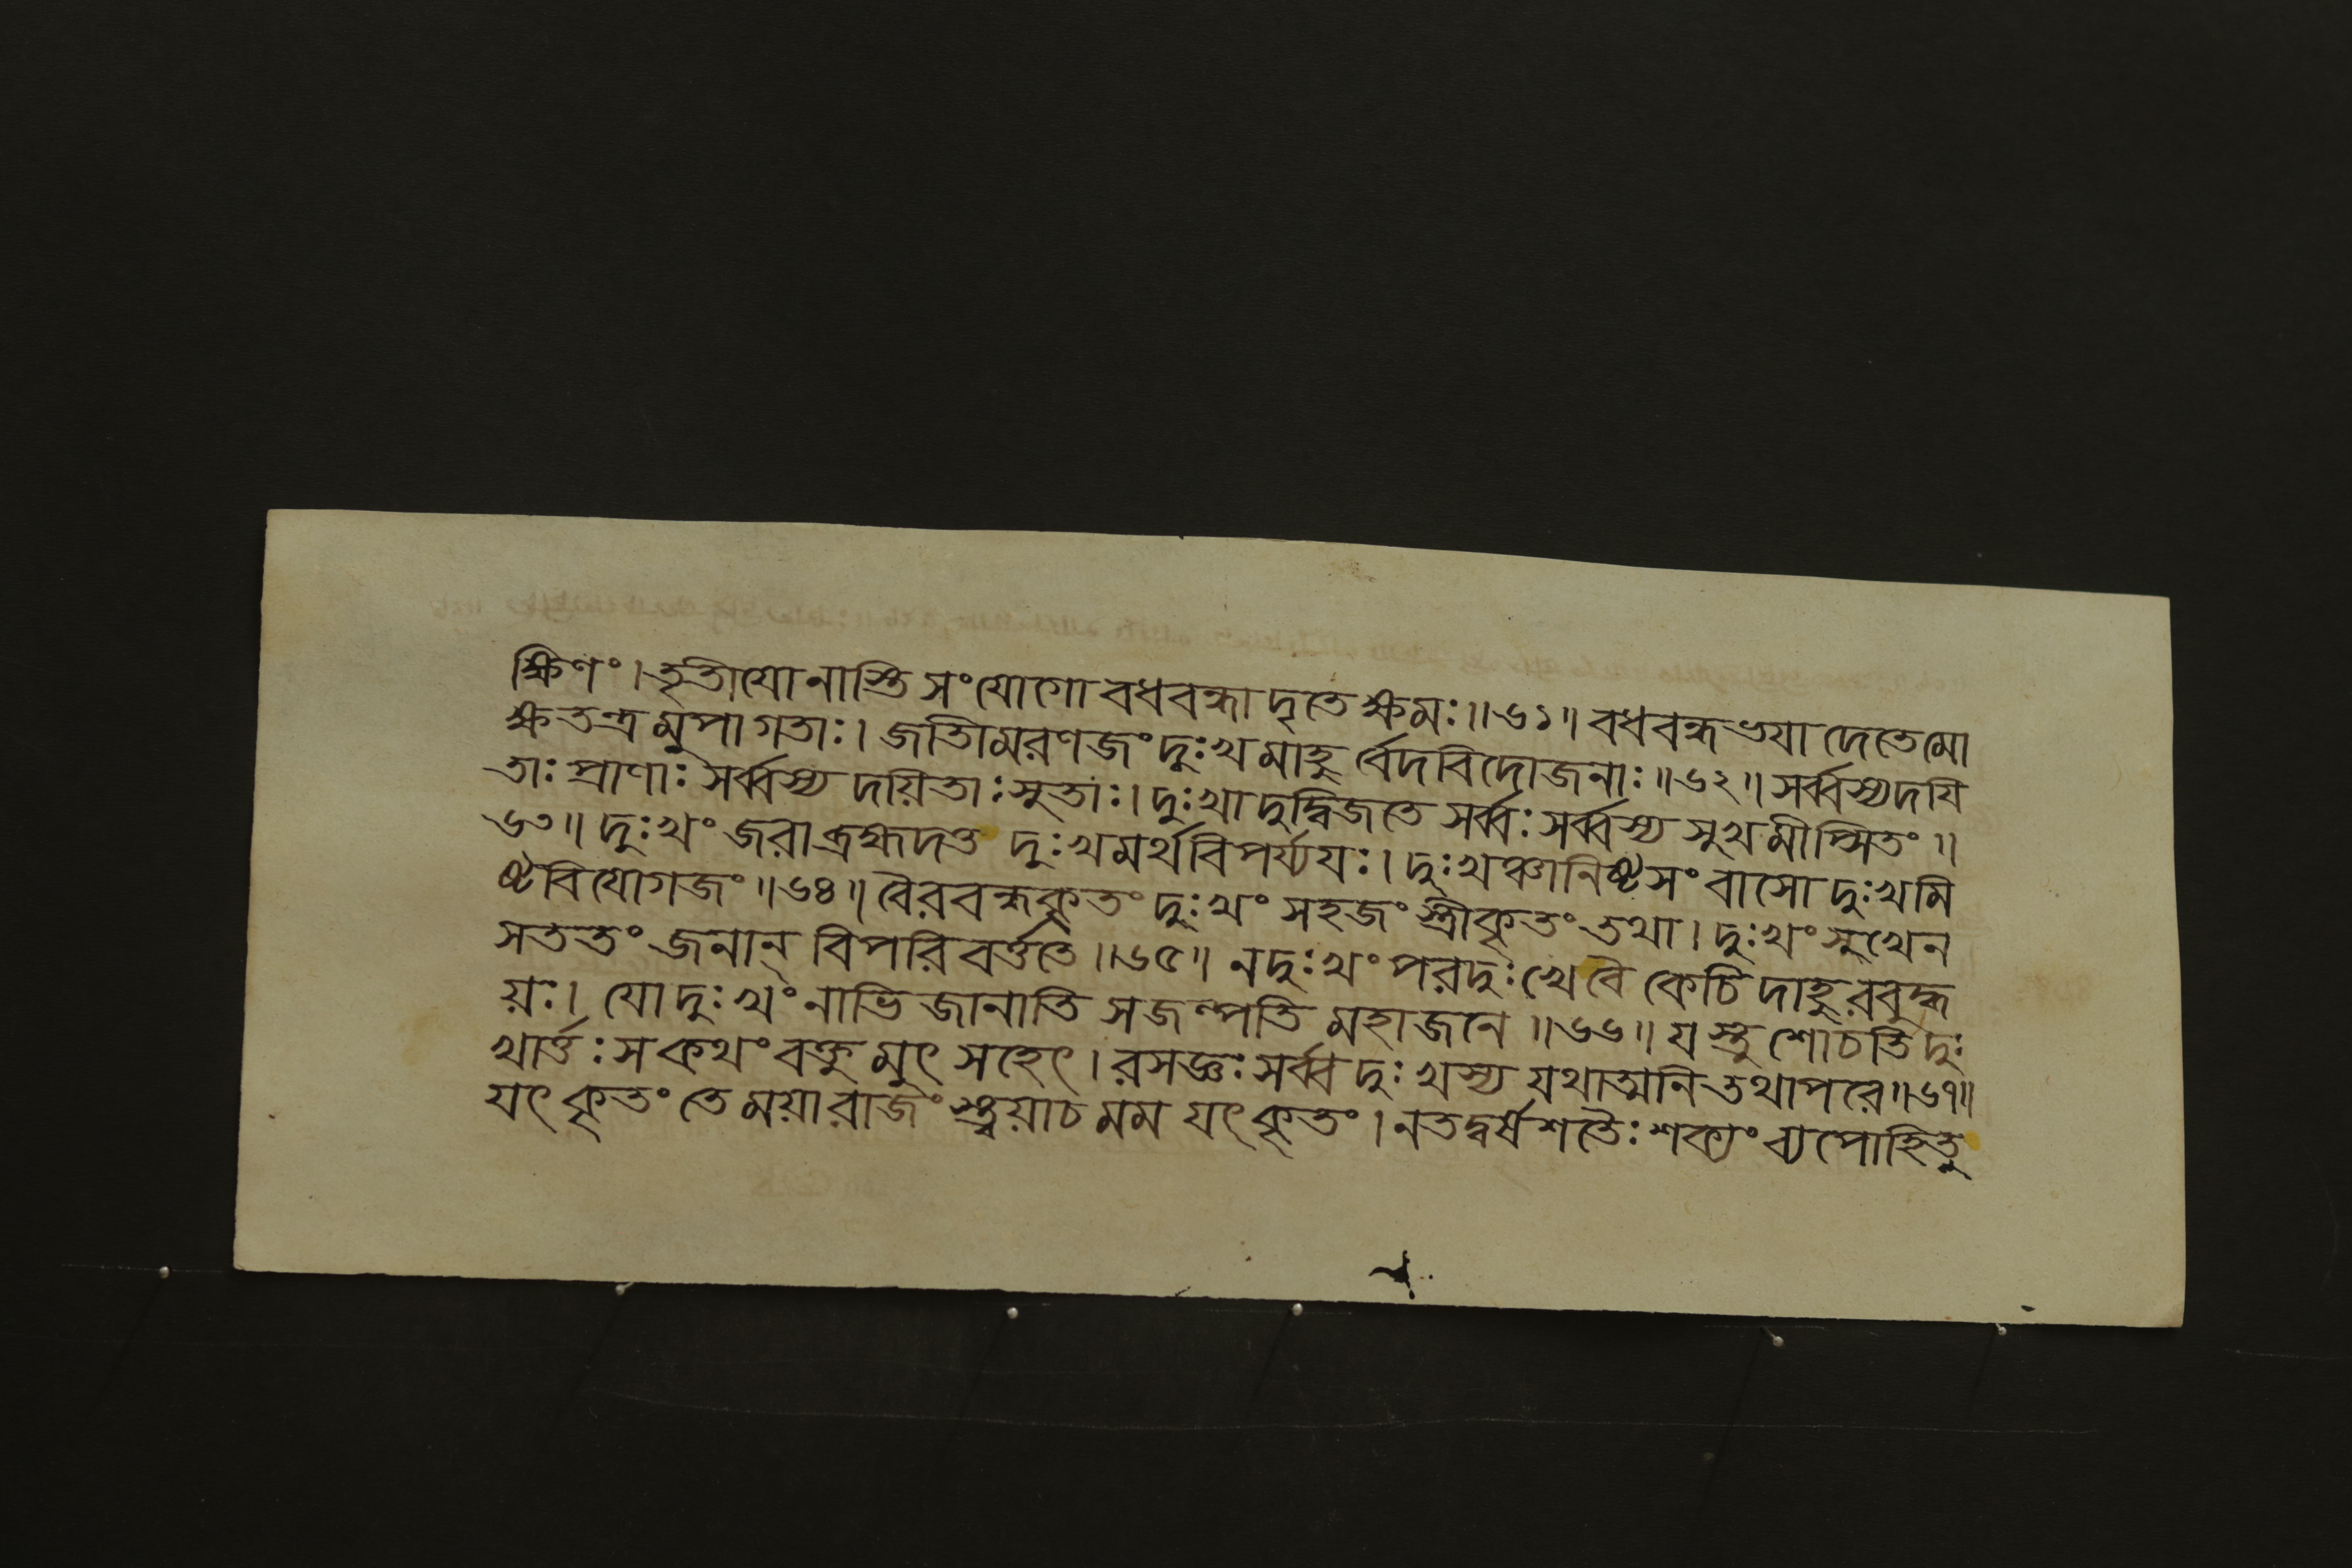 ক্ষিণং। তৃতীযো নাস্তি সংযোগো বধবন্ধাদৃতে ক্ষমঃ॥৬১॥ বধবন্ধভযাদেতে মো
ক্ষতন্ত্রমুপাগতাঃ। জাতিমরণজং দুঃখমাহুর্বেদবিদোজনাঃ॥৬২॥ সর্ব্বস্যদযি
তাঃ প্রাণাঃ সর্ব্বস্য দয়িতাঃ সুতাঃ। দুঃখাদুদ্বিজতে সর্ব্বঃ সর্ব্বস্য সুখমীপ্সিতং॥
৬৩॥ দুঃখং জরা ব্রহ্মদত্ত দুঃখমর্থবিপর্য্যযঃ। দুঃখঞ্চানিষ্টসংবাসো দুঃখমি
ষ্টবিযোগজং॥৬৪॥ বৈরবন্ধকৃতং দুঃখং সহজং স্ত্রীকৃতং তথা। দুঃখং সুখেন
সততং জনান্ বিপরিবর্ত্ততে॥৬৫॥ নদুঃখং পরদুঃখে বৈ কেচিদাহুরবুদ্ধ
য়ঃ। যো দুঃখং নাভিজানাতি সজল্পতি মহাজনে॥৬৬॥ যস্তু শোচতি দুঃ
খার্ত্তঃ সকথং বক্তুমুৎসহেৎ। রসজ্ঞঃ সর্ব্বদুঃখস্য যথাত্মনি তথাপরে॥৬৭॥
যৎ কৃতং তে ময়ারাজংস্ত্বয়াচ মম যৎকৃতং। নতদ্বর্ষশতৈঃ শক্যং ব্যপোহিতু